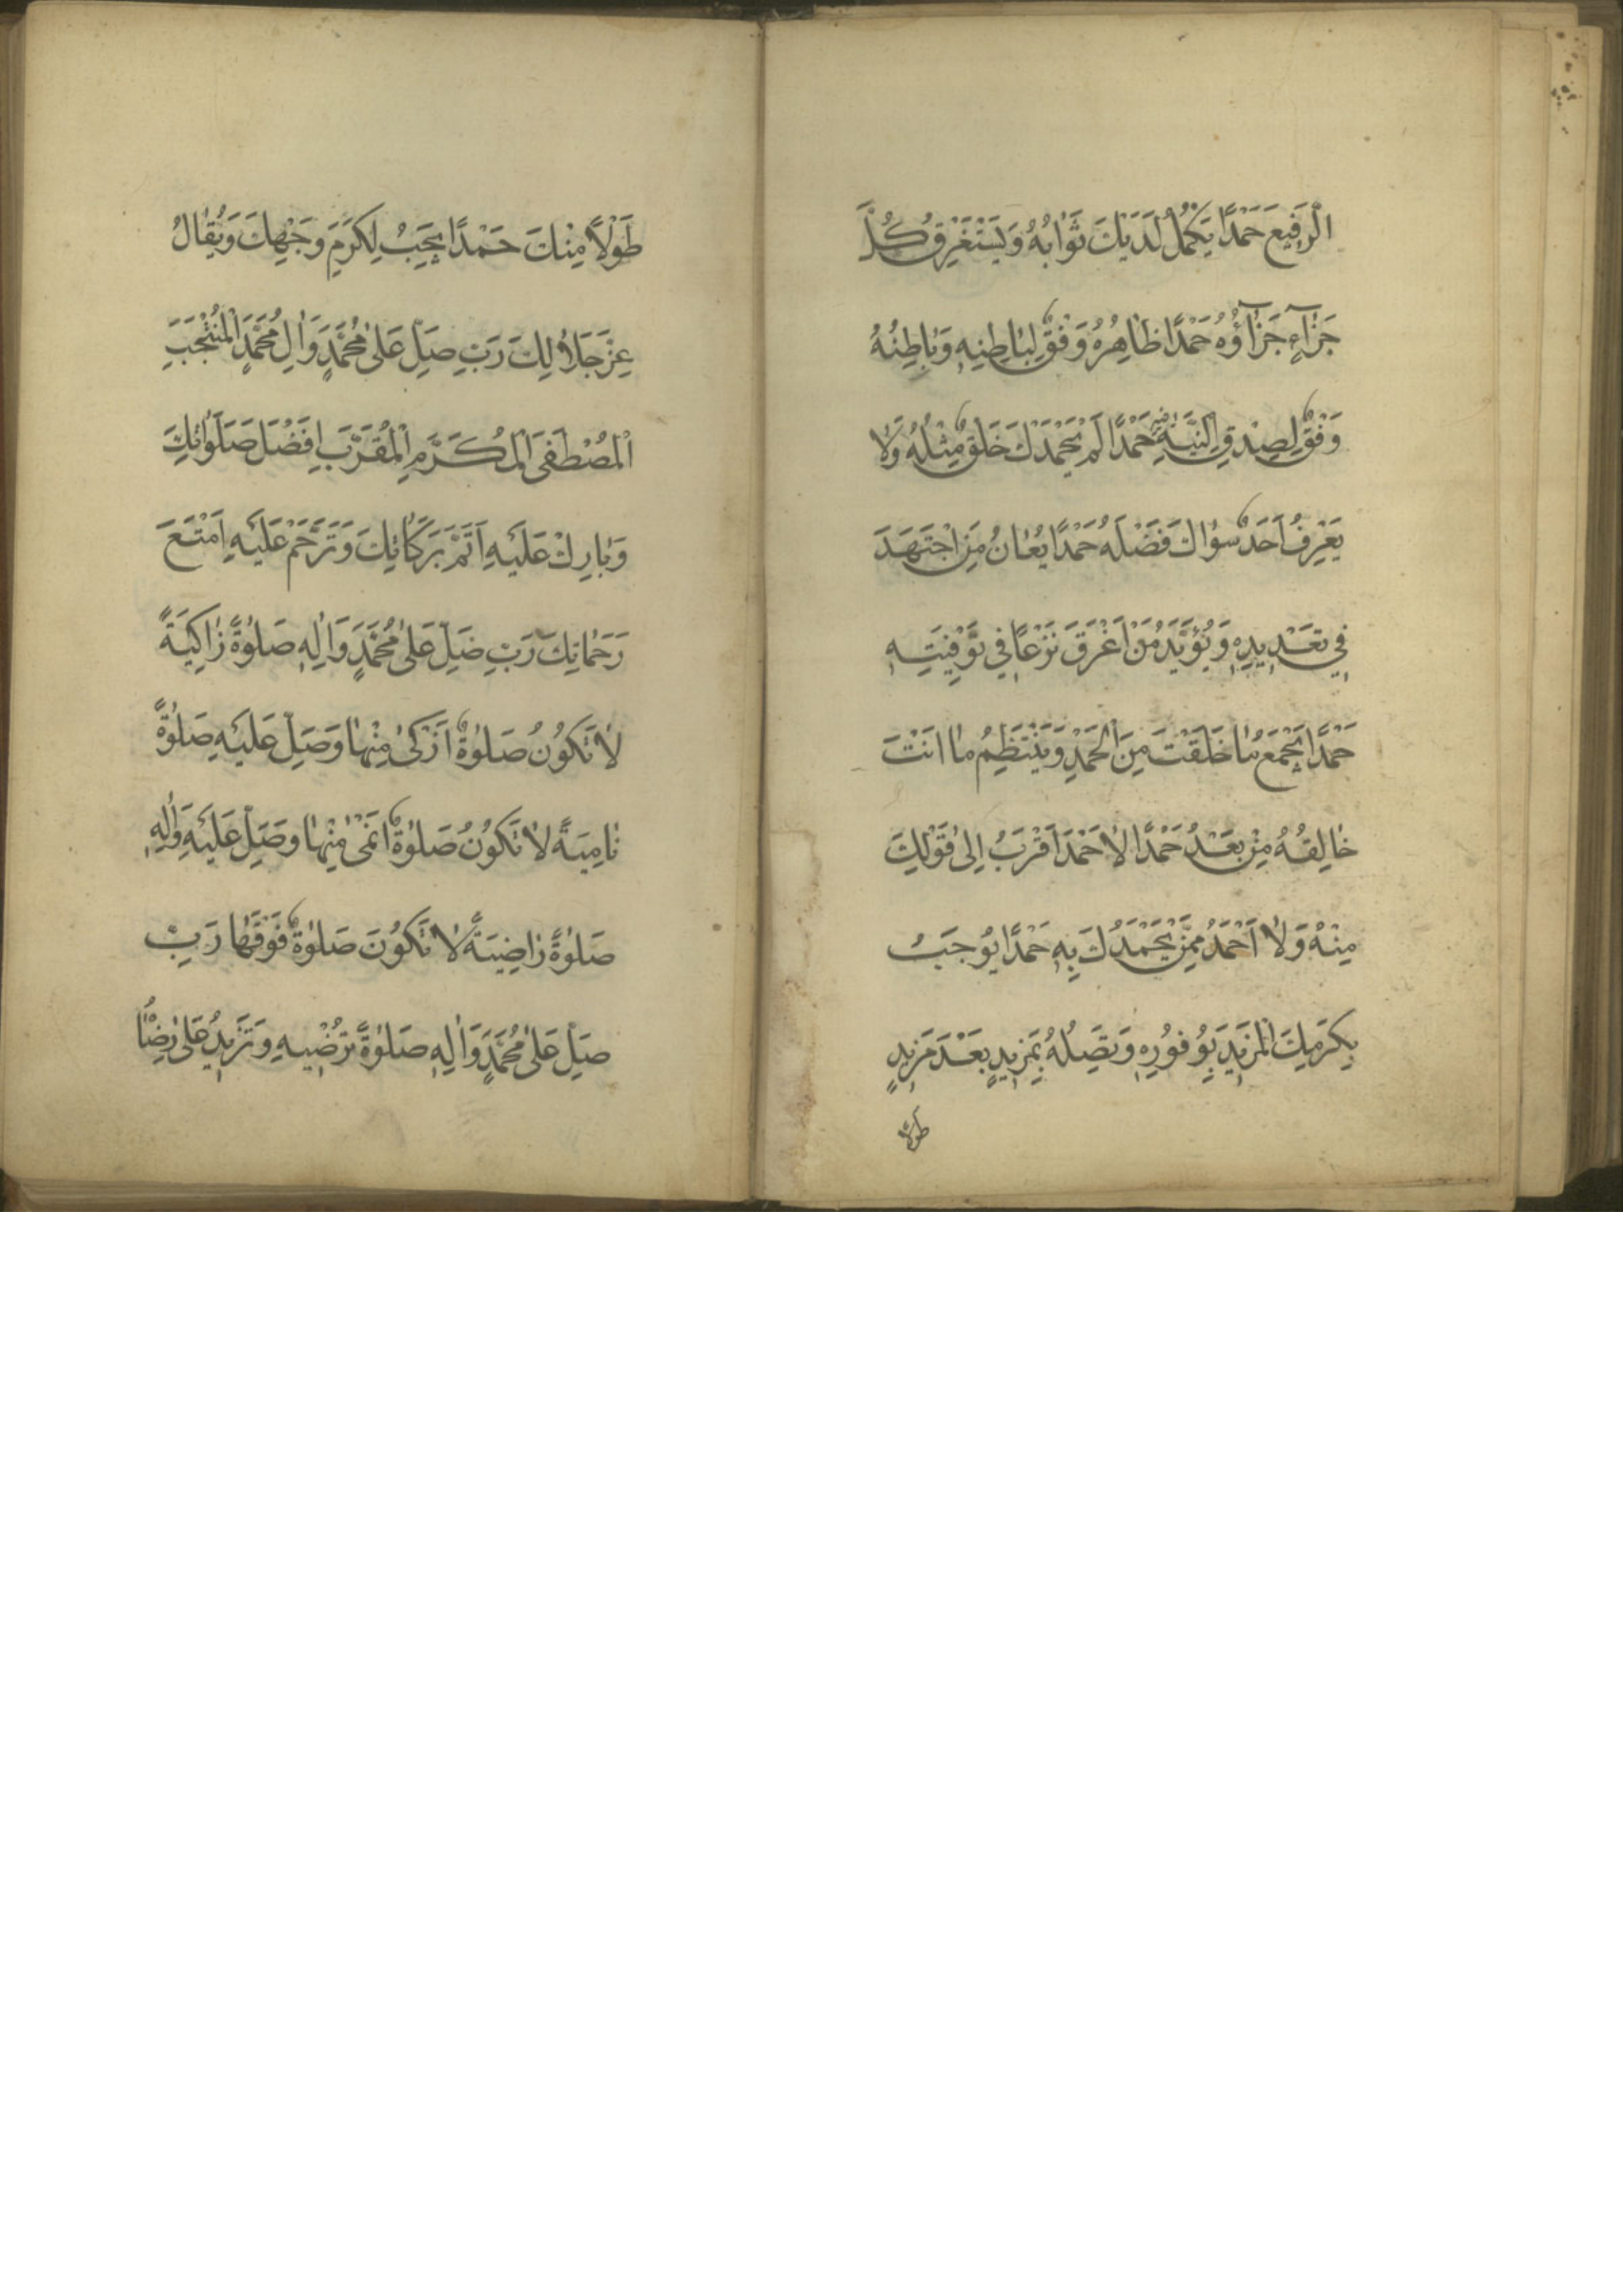 الرَّفِيعَ حَمْدًا يَكْمُلُ لَدَيْكَ ثَوَابُهُ وَيَسْتَغْرِقُ كُلَّ
جَزَآءٍ جَزَآؤُهُ حَمْدًا ظَاهِرُهُ وَفْقٌ لِبَاطِنِهِ وَبَاطِنُهُ
وَفْقٌ لِصِدْقِ النِّيَّةِ فِيهِ حَمْدًا لَمْ يَحْمَدْكَ خَلْقٌ مِثْلَهُ وَلَا
يَعْرِفُ اَحَدٌ سِوَاكَ فَضْلَهُ حَمْدًا يُعَانُ مَنِ اجْتَهَدَ
فِي تَعْدِيدِهِ وَيُؤَيَّدُ مَنْ اَغْرَقَ نَزْعًا فِي تَوْفِيَتِهِ
حَمْدًا يَجْمَعُ مَا خَلَقْتَ مِنَ الْحَمْدِ وَيَنْتَظِمُ مَا اَنْتَ
خَالِقُهُ مِنْ بَعْدُ حَمْدًا لَا حَمْدَ اَقْرَبُ اِلَى قَوْلِكَ
مِنْهُ وَلَا اَحْمَدُ مِمَّنْ يَحْمَدُكَ بِهِ حَمْدًا يُوجِبُ
بِكَرَمِكَ الْمَزِيدَ بِوُفُورِهِ وَتَصِلُهُ بِمَزِيدٍ بَعْدَ مَزِيدٍ
طَوْلًا
طَوْلًا مِنْكَ حَمْدًا يَجِبُ لِكَرَمِ وَجْهِكَ وَيُقَابِلُ
عِزَّ جَلَالِكَ رَبِّ صَلِّ عَلَى مُحَمَّدٍ وَاٰلِ مُحَمَّدٍ الْمُنْتَجَبِ
الْمُصْطَفَى الْمُكَرَّمِ الْمُقَرَّبِ اَفْضَلَ صَلَوَاتِكَ
وَبَارِكْ عَلَيْهِ اَتَمَّ بَرَكَاتِكَ وَتَرَحَّمْ عَلَيْهِ اَمْتَعَ
رَحَمَاتِكَ رَبِّ صَلِّ عَلَى مُحَمَّدٍ وَاٰلِهِ صَلٰوةً زَاكِيَةً
لَا تَكُونُ صَلٰوةٌ اَزْكَى مِنْهَا وَصَلِّ عَلَيْهِ صَلٰوةً
نَامِيَةً لَا تَكُونُ صَلٰوةٌ اَنْمَى مِنْهَا وَصَلِّ عَلَيْهِ وَاٰلِهِ
صَلٰوةً رَاضِيَةً لَا تَكُونَ صَلٰوةٌ فَوْقَهَا رَبِّ
صَلِّ عَلَى مُحَمَّدٍ وَاٰلِهِ صَلٰوةً تُرْضِيهِ وَتَزِيدُ عَلَى رِضَا